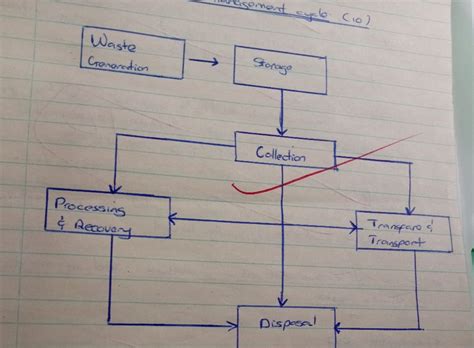 management cycle (10)
Waste
Generation
Storage
Collection
Processing
& Recovery
Transfare &
Transport
Disposal